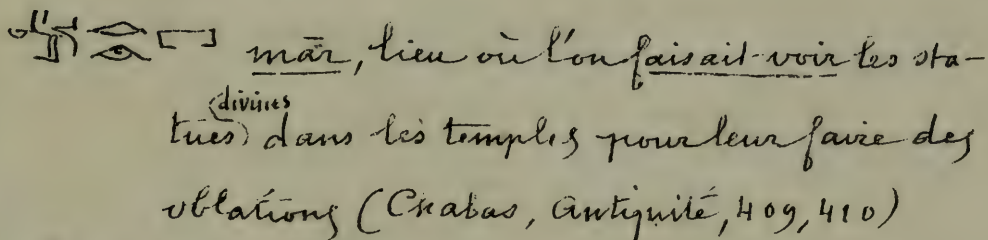 mār, lieu où l'on faisait voir les sta-
tues (divines) dans les temples pour leur faire des
oblations (Chabas, Antiquité, 409, 410)